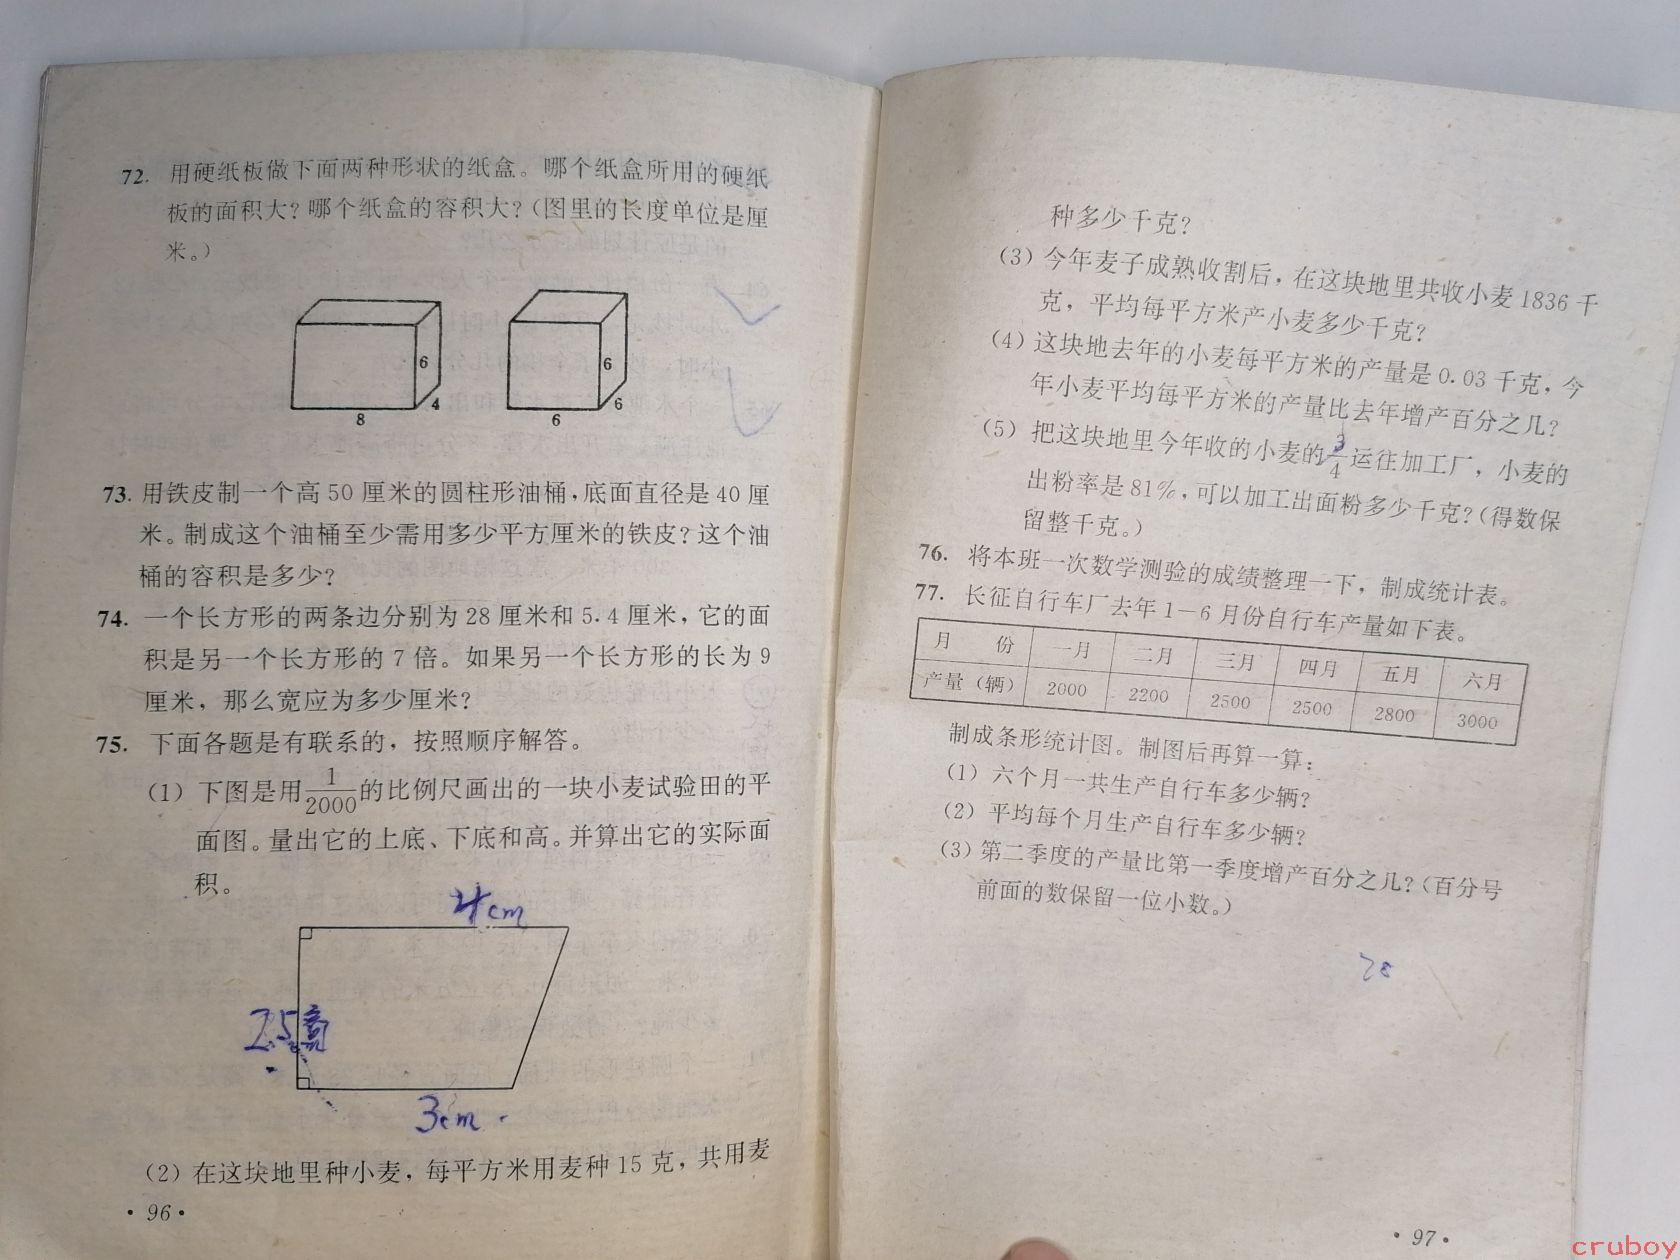 72. 用硬纸板做下面两种形状的纸盒。哪个纸盒所用的硬纸
板的面积大？哪个纸盒的容积大？（图里的长度单位是厘
米。）
6
4
8
6
6
6
73. 用铁皮制一个高50厘米的圆柱形油桶，底面直径是40厘
米。制成这个油桶至少需用多少平方厘米的铁皮？这个油
桶的容积是多少？
74. 一个长方形的两条边分别为28厘米和5.4厘米，它的面
积是另一个长方形的7倍。如果另一个长方形的长为9
厘米，那么宽应为多少厘米？
75. 下面各题是有联系的，按照顺序解答。
（1）下图是用1/2000的比例尺画出的一块小麦试验田的平
面图。量出它的上底、下底和高。并算出它的实际面
积。
4cm
2.5高
3cm
（2）在这块地里种小麦，每平方米用麦种15克，共用麦
·96·
种多少千克？
（3）今年麦子成熟收割后，在这块地里共收小麦1836千
克，平均每平方米产小麦多少千克？
（4）这块地去年的小麦每平方米的产量是0.03千克，今
年小麦平均每平方米的产量比去年增产百分之几？
（5）把这块地里今年收的小麦的3/4运往加工厂，小麦的
出粉率是81%，可以加工出面粉多少千克？（得数保
留整千克。）
76. 将本班一次数学测验的成绩整理一下，制成统计表。
77. 长征自行车厂去年1－6月份自行车产量如下表。
月 份 一月 二月 三月 四月 五月 六月
产量（辆） 2000 2200 2500 2500 2800 3000
制成条形统计图。制图后再算一算：
（1）六个月一共生产自行车多少辆？
（2）平均每个月生产自行车多少辆？
（3）第二季度的产量比第一季度增产百分之几？（百分号
前面的数保留一位小数。）
·97·
cruboy